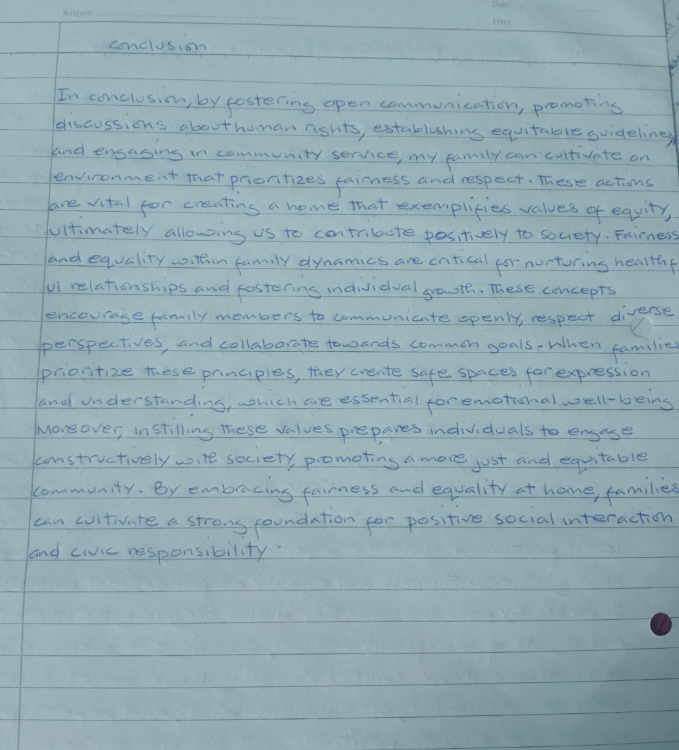 Subject:
Date:
Date:
conclusion
In conclusion, by fostering open communication, promoting
discussions about human rights, establishing equitable guidelines,
and engaging in community service, my family can cultivate an
environment that prioritizes fairness and respect. These actions
are vital for creating a home that exemplifies values of equity,
ultimately allowing us to contribute positively to society. Fairness
and equality within family dynamics are critical for nurturing healthf
ul relationships and fostering individual growth. These concepts
encourage family members to communicate openly, respect diverse
perspectives, and collaborate towards common goals. When families
prioritize these principles, they create safe spaces for expression
and understanding, which are essential for emotional well-being
Moreover, instilling these values prepares individuals to engage
constructively with society, promoting a more just and equitable
community. By embracing fairness and equality at home, families
can cultivate a strong foundation for positive social interaction
and civic responsibility.